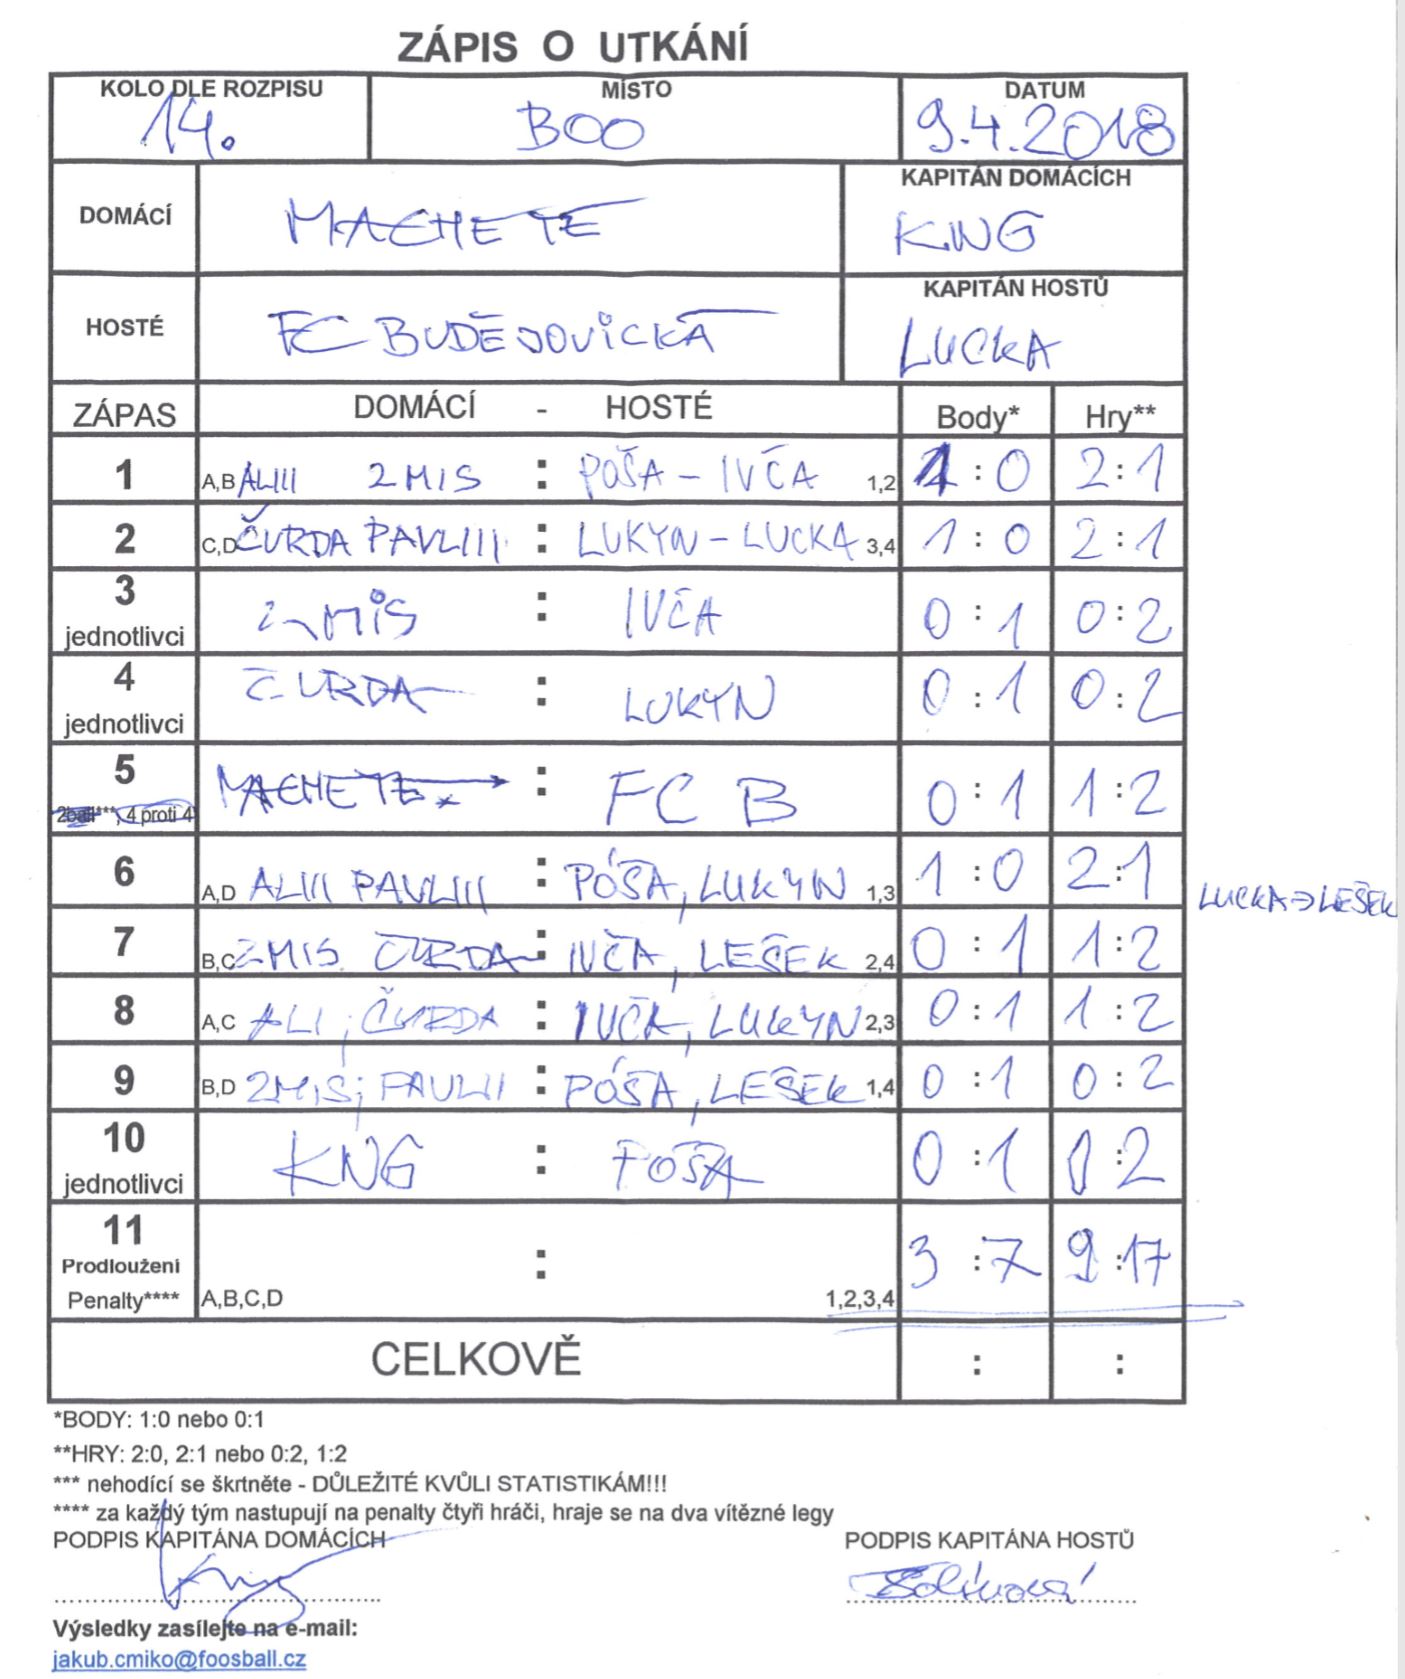 ZÁPIS O UTKÁNÍ
KOLO DLE ROZPISU MÍSTO DATUM
14. BOO 9.4.2018
DOMÁCÍ MACHETE KAPITÁN DOMÁCÍCH
KNG
HOSTÉ FC BUDĚJOVICKÁ KAPITÁN HOSTŮ
LUCKA
ZÁPAS DOMÁCÍ - HOSTÉ Body* Hry**
1 A,B ALIII 2MIS : POŠA - IVČA 1,2 1:0 2:1
2 C,D ČURDA PAVLIII : LUKYN - LUCKA 3,4 1:0 2:1
3 jednotlivci 2MIS : IVČA 0:1 0:2
4 jednotlivci ČURDA : LUKYN 0:1 0:2
5 2ball***, 4 proti 4 MACHETE : FC B 0:1 1:2
6 A,D ALIII PAVLIII : PÓŠA, LUKYN 1,3 1:0 2:1
LUCKA → LEŠEK
7 B,C 2MIS ČURDA : IVČA, LEŠEK 2,4 0:1 1:2
8 A,C ALI, ČURDA : IVČA, LUKYN 2,3 0:1 1:2
9 B,D 2MIS; PAVLII : PÓŠA, LEŠEK 1,4 0:1 0:2
10 jednotlivci KNG : PÓŠA 0:1 0:2
11 Prodloužení Penalty**** A,B,C,D : 1,2,3,4 3:7 9:17
CELKOVĚ : :
*BODY: 1:0 nebo 0:1
**HRY: 2:0, 2:1 nebo 0:2, 1:2
*** nehodící se škrtněte - DŮLEŽITÉ KVŮLI STATISTIKÁM!!!
**** za každý tým nastupují na penalty čtyři hráči, hraje se na dva vítězné legy
PODPIS KAPITÁNA DOMÁCÍCH PODPIS KAPITÁNA HOSTŮ
Výsledky zasílejte na e-mail:
jakub.cmiko@foosball.cz